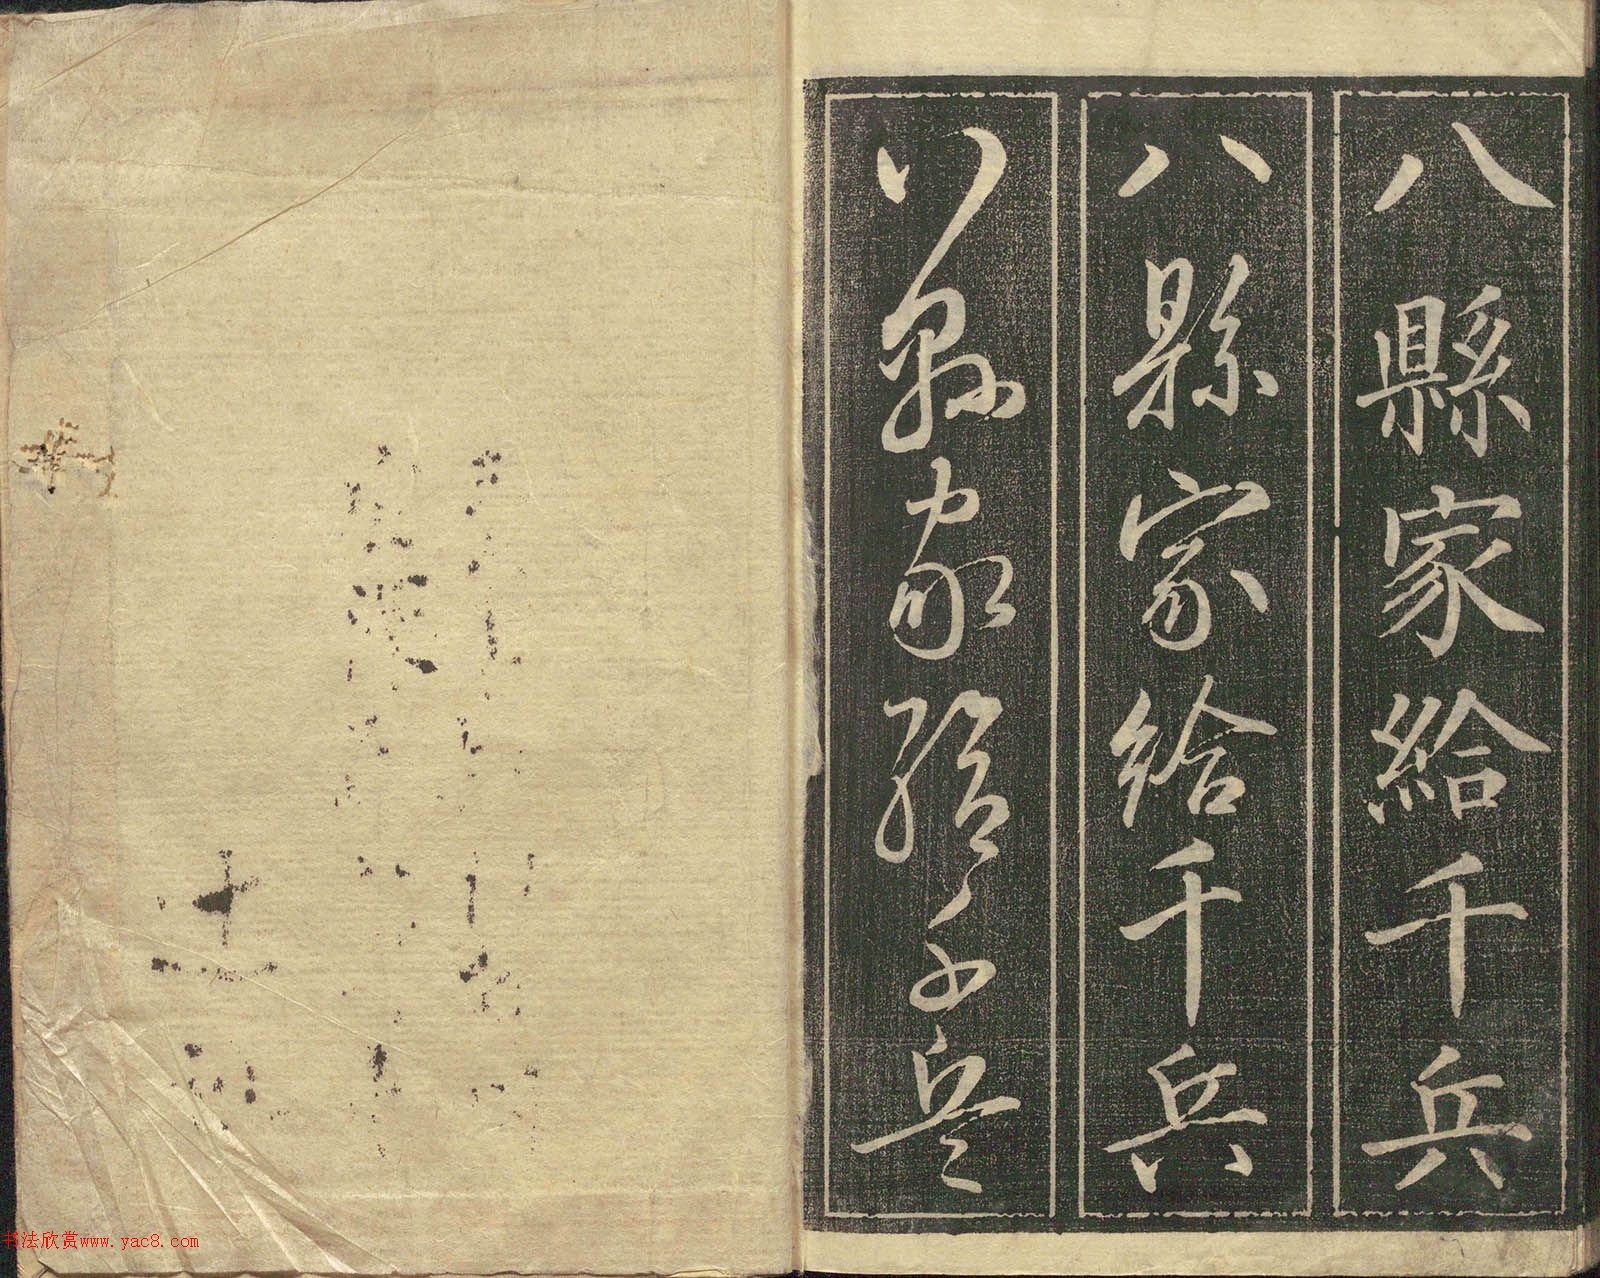 八縣家給千兵
八縣家給千兵
八縣家給千兵
书法欣赏www.yac8.com